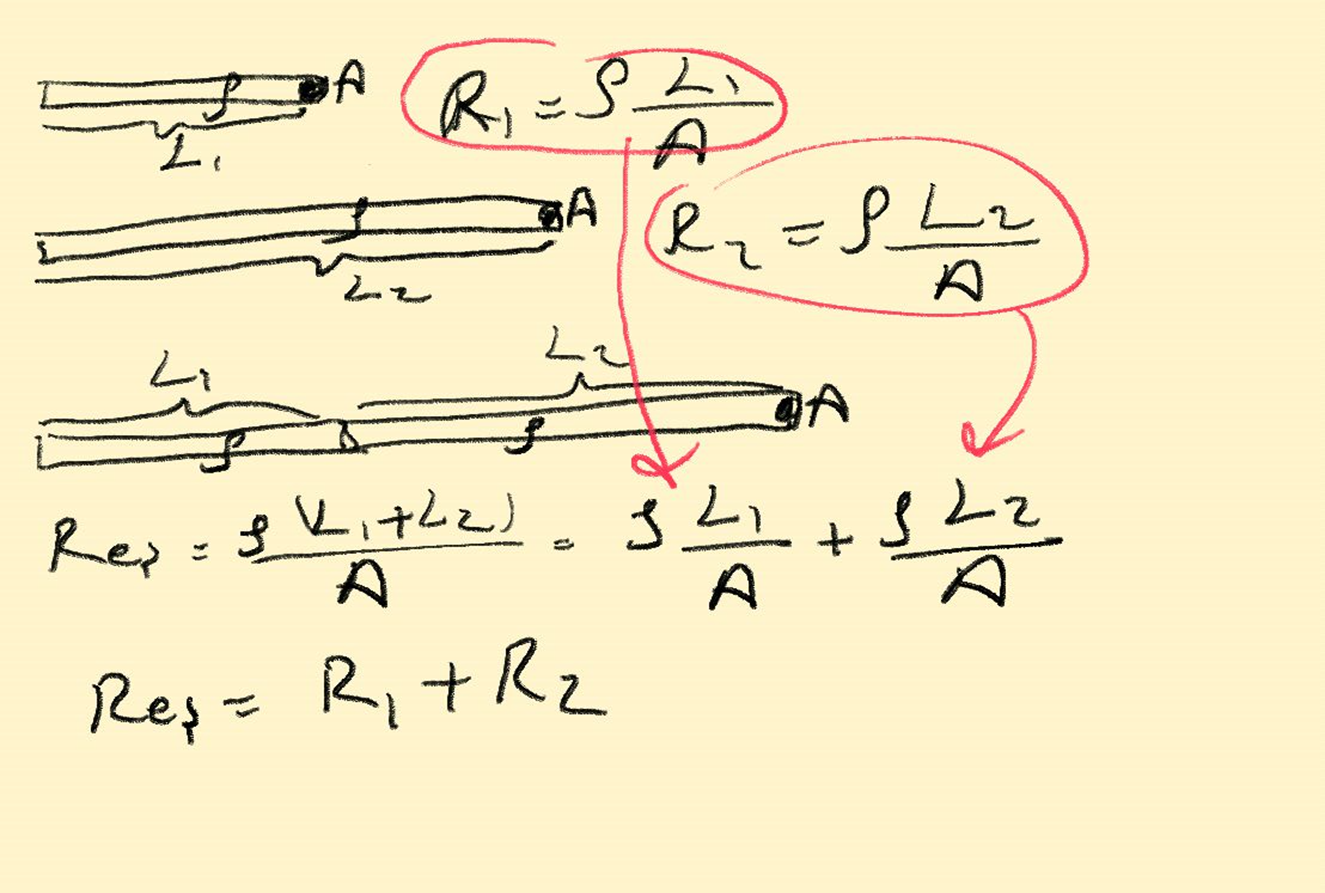 ρ A R₁ = ρ L₁/A
L₁
ρ A R₂ = ρ L₂/A
L₂
L₁ L₂
ρ ρ A
Req = ρ (L₁+L₂)/A = ρ L₁/A + ρ L₂/A
Req = R₁ + R₂